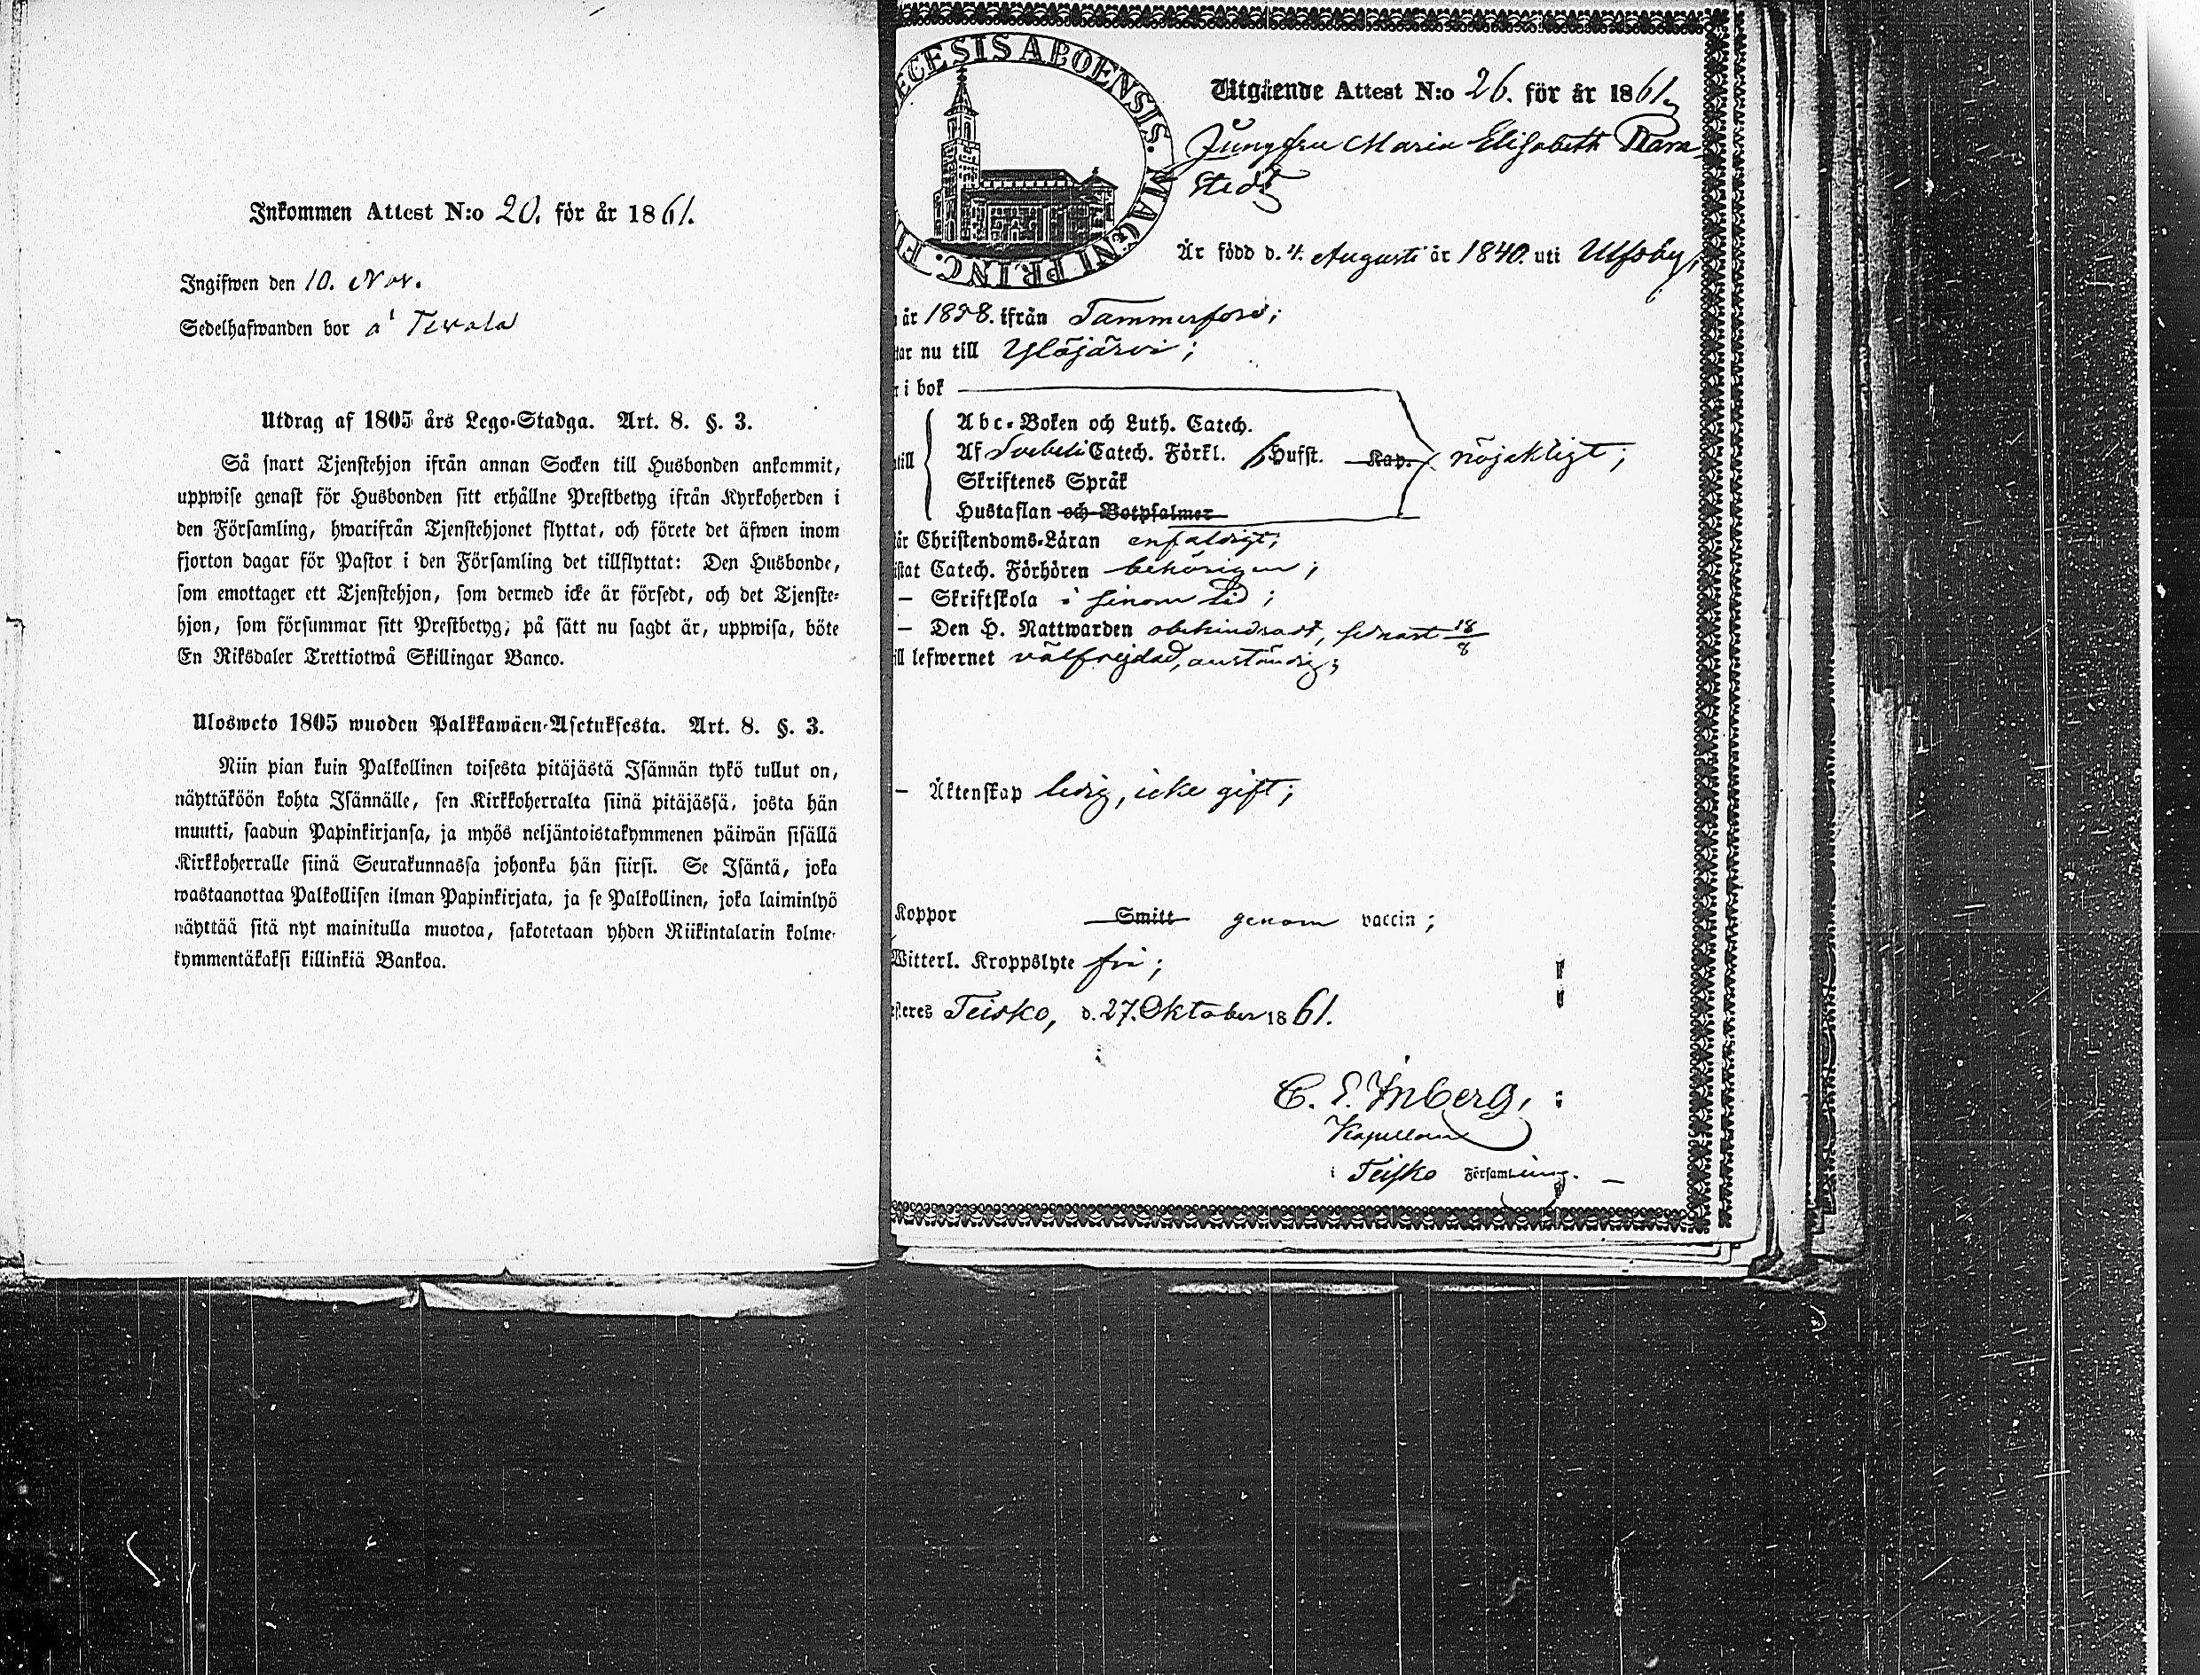 Inkommen Attest N:o 20. för år 1861.
Ingifwen den 10. Nov.
Sedelhafwanden bor å Terala
Utdrag af 1805 års Lego-Stadga. Art. 8. §. 3.
Så snart Tjenstehjon ifrån annan Socken till Husbonden ankommit,
uppwise genast för Husbonden sitt erhållne Prestbetyg ifrån Kyrkoherden i
den Församling, hwarifrån Tjenstehjonet flyttat, och förete det äfwen inom
fjorton dagar för Pastor i den Församling det tillflyttat: Den Husbonde,
som emottager ett Tjenstehjon, som dermed icke är försedt, och det Tjenste-
hjon, som försummar sitt Prestbetyg, på sätt nu sagdt är, uppwisa, böte
En Riksdaler Trettiotwå Skillingar Banco.
Ulosweto 1805 wuoden Palkkawäen-Asetuksesta. Art. 8. §. 3.
Niin pian kuin Palkollinen toisesta pitäjästä Isännän tykö tullut on,
näyttäköön kohta Isännälle, sen Kirkkoherralta siinä pitäjässä, josta hän
muutti, saadun Papinkirjansa, ja myös neljäntoistakymmenen päiwän sisällä
Kirkkoherralle siinä Seurakunnassa johonka hän siirsi. Se Isäntä, joka
wastaanottaa Palkollisen ilman Papinkirjata, ja se Palkollinen, joka laiminlyö
näyttää sitä nyt mainitulla muotoa, sakotetaan yhden Riikintalarin kolme-
kymmentäkaksi killinkiä Bankoa.
ECESIS ABOENSIS. MAGNI PRINC. FI
Utgående Attest N:o 26. för år 1861,
Jungfru Maria Elisabeth
stedt
Är född d. 4. Augusti år 1840. uti Ulfsby;
år 1858. ifrån Tammerfors;
tar nu till Ylöjärvi;
r i bok
Abc-Boken och Luth. Catech.
till Af Svebeli Catech. Förkl. 6 Hufst. Kap. nöjaktigt;
Skriftenes Språk
Hustaflan och Botpsalmer
år Christendoms-Läran enfaldigt;
istat Catech. Förhören behörigen;
– Skriftskola i sinom tid;
– Den H. Nattwarden obehindradt, sednast 18/8
ill lefwernet välfrejdad, anständig;
– Äktenskap ledig, icke gift;
Koppor Smitt genom vaccin;
Witterl. Kroppslyte fri;
esteres Teisko, d. 27. Oktober 1861.
C. E. Inberg,
Kapellan
i Teisko Församling.